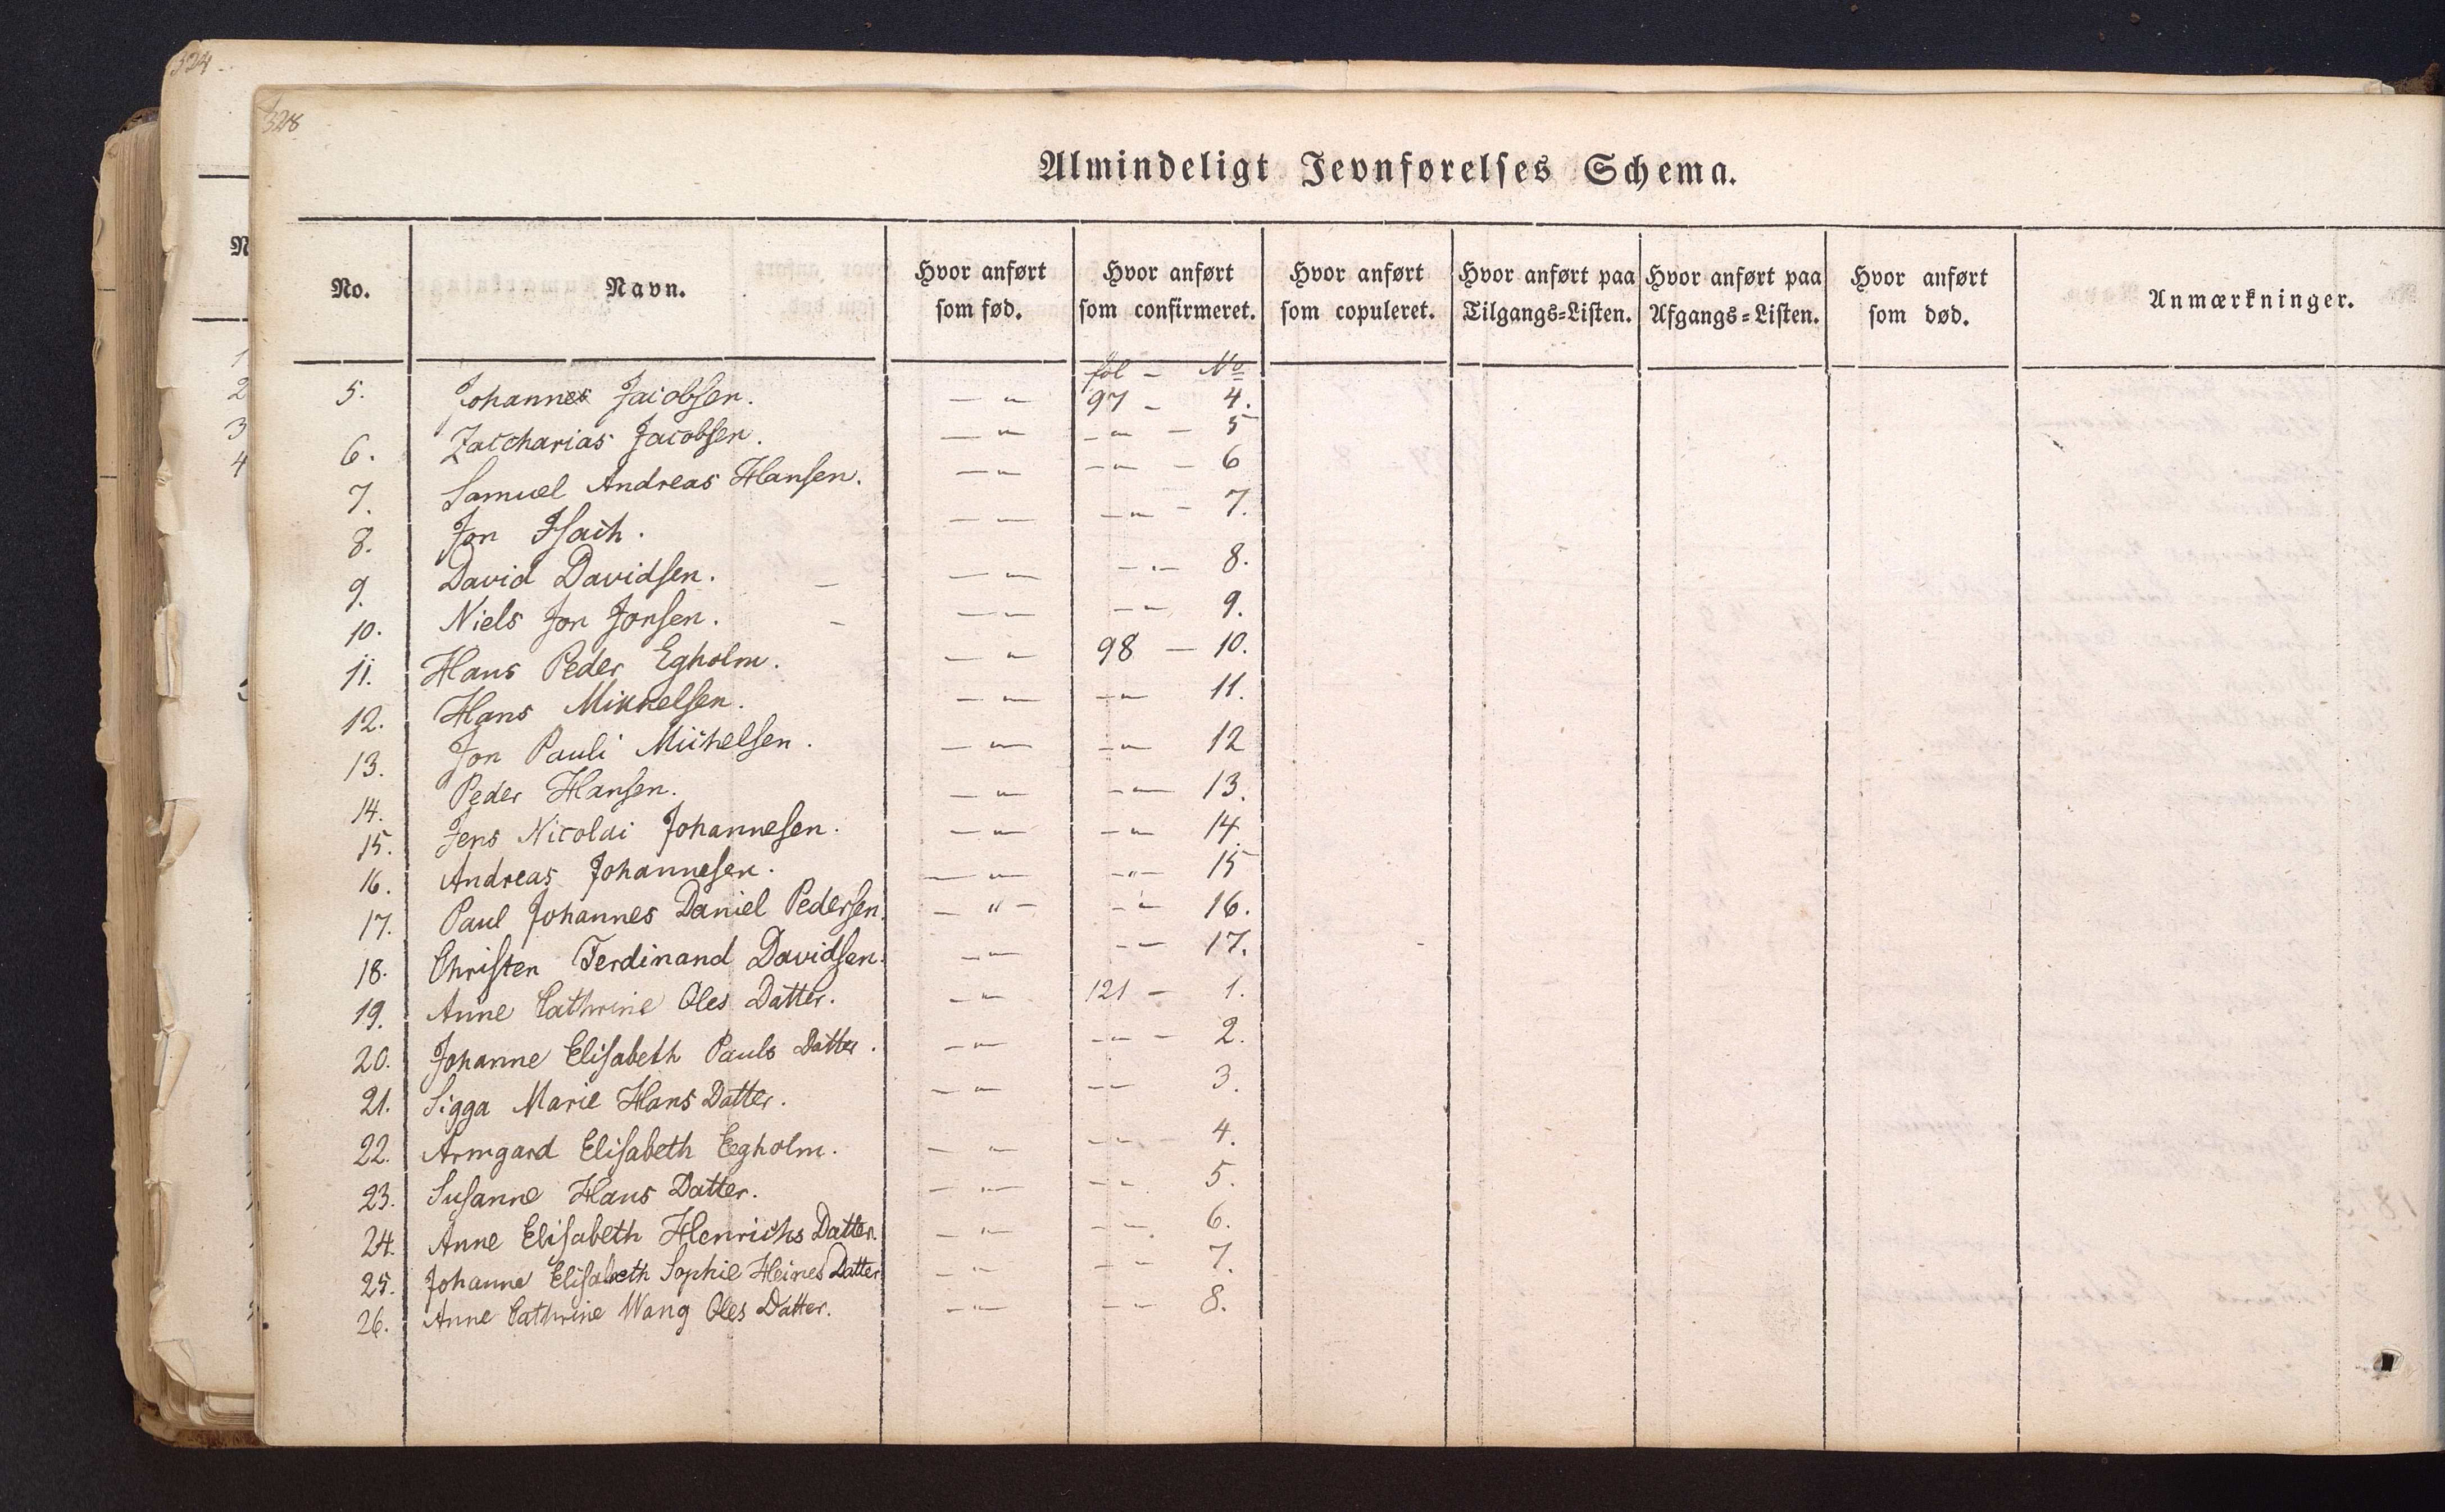 324
328
Almindeligt Jevnførelses Schema.
No. Navn. Hvor anført som fød. Hvor anført som confirmeret. Hvor anført som copuleret. Hvor anført paa Tilgangs=Listen. Hvor anført paa Afgangs=Listen. Hvor anført som død. Anmærkninger.
fol - No
5. Johannes Jacobsen. — " 97 - 4.
6. Zaccharias Jacobsen. — " — " — 5
7. Samuel Andreas Hansen. — " — " — 6
8. Jon Isach. — — — " - 7.
9. David Davidsen. — — — " — 8.
10. Niels Jon Jonsen. — — — " 9.
11. Hans Peder Egholm. — " 98 — 10.
12. Hans Mikkelsen. — " — " 11.
13. Jon Pauli Michelsen. — " — " 12
14. Peder Hansen. — " — " 13.
15. Jens Nicolai Johannesen. — " — " 14.
16. Andreas Johannesen. — " — " — 15
17. Paul Johannes Daniel Pedersen. — " — — " 16.
18. Christen Ferdinand Davidsen. — " — " 17.
19. Anne Cathrine Oles Datter. — " 121 — 1.
20. Johanne Elisabeth Pauls Datter. — " — " — 2.
21. Sigga Marie Hans Datter. — " — " 3.
22. Armgard Elisabeth Egholm. — " — " — 4.
23. Susanne Hans Datter. — " — " 5.
24. Anne Elisabeth Henrichs Datter. — " — " 6.
25. Johanne Elisabeth Sophie Heines Datter — " — " 7.
26. Anne Cathrine Wang Oles Datter. — " — " 8.